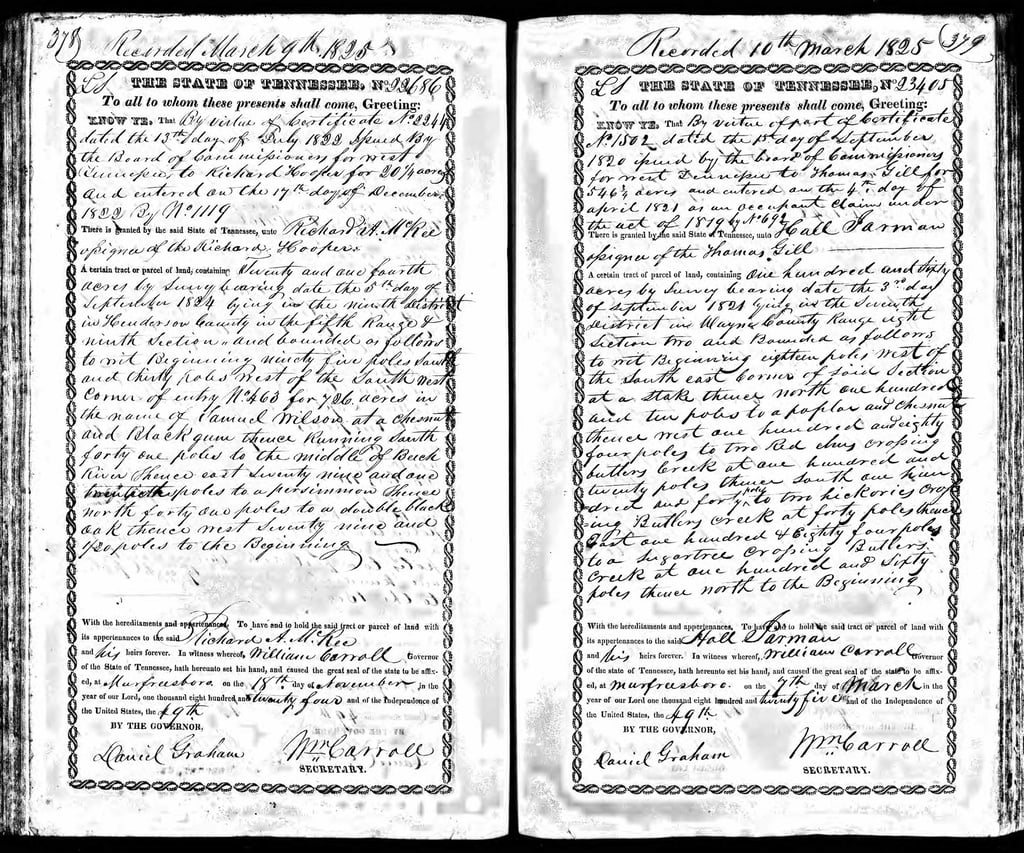 378
Recorded March 9th 1825
LS THE STATE OF TENNESSEE, No 22686
To all to whom these presents shall come, Greeting:
KNOW YE, That By virtue of Certificate No 2244
dated the 13th day of July 1822 Issued By
the Board of Commissioners for west
Tennessee to Richard Hooper for 20 1/4 acres
And entered on the 17th day of December
1822 By No 1119
There is granted by the said State of Tennessee, unto Richard A. McKee
assignee of the Richard Hooper
A certain tract or parcel of land, containing Twenty and one fourth
acres by Survey bearing date the 5th day of
September 1824 lying in the ninth District
in Henderson County in the fifth Range &
ninth Section and bounded as follows
to wit Beginning ninety five poles South
and thirty poles west of the South West
Corner of entry No 463 for 726 acres in
the name of Samuel Wilson at a Chesnut
and Black gum thence Running South
forty one poles to the middle of Beech
River Thence east Seventy nine and one
twentieth poles to a persimmon Thence
north forty one poles to a double black
oak thence west Seventy nine and
1/20 poles to the Beginning
With the hereditaments and appertenances. To have and to hold the said tract or parcel of land with
its appertenances to the said Richard A. McKee
and his heirs forever. In witness whereof, William Carroll Governor
of the State of Tennessee, hath hereunto set his hand, and caused the great seal of the state to be affix-
ed, at Murfreesboro on the 18th day of November in the
year of our Lord, one thousand eight hundred and twenty four and of the Independence of
the United States, the 49th
BY THE GOVERNOR,
Daniel Graham Wm Carroll
SECRETARY.
379
Recorded 10th March 1825
LS THE STATE OF TENNESSEE, No 23405
To all to whom these presents shall come, Greeting:
KNOW YE, That By virtue of part of Certificate
No 1502 dated the 1st day of September
1820 issued by the board of Commissioners
for west Tennessee to Thomas Gill for
546 1/4 acres and entered on the 4th day of
april 1821 as an occupant claim under
the act of 1819 by No 692
There is granted by the said State of Tennessee, unto Hall Jarman
assignee of the Thomas Gill
A certain tract or parcel of land, containing One hundred and fifty
acres by Survey bearing date the 3rd day
of September 1821 lying in the Seventh
District in Wayne County Range eight
Section two and Bounded as follows
to wit Beginning eighteen poles west of
the South east Corner of said Section
at a stake thence north one hundred
and ten poles to a poplar and Chesnut
thence west one hundred and eighty
four poles to two Red elms crossing
butlers Creek at one hundred and
twenty poles thence South one hun
dred and forty poles to two hickories cross
ing Butlers Creek at forty poles thence
East one hundred & Eighty four poles
to a Sugartree Crossing Butlers
Creek at one hundred and Sixty
poles thence north to the Beginning
With the hereditaments and appertenances. To have and to hold the said tract or parcel of land with
its appertenances to the said Hall Jarman
and his heirs forever. In witness whereof, William Carroll Governor
of the state of Tennessee, hath hereunto set his hand, and caused the great seal of the state to be affix-
ed, at murfreesboro. on the 7th day of March in the
year of our Lord one thousand eight hundred and twenty five and of the Independence of
the United States, the 49th
BY THE GOVERNOR,
Daniel Graham Wm Carroll
SECRETARY.